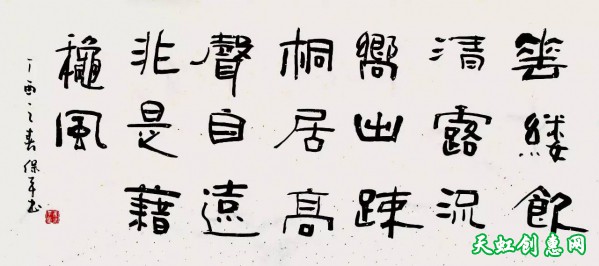 垂縷飲
清露況
嚮出踈
桐居高
聲自遠
非是藉
穐風
丁酉之春保平书
天虹创意网